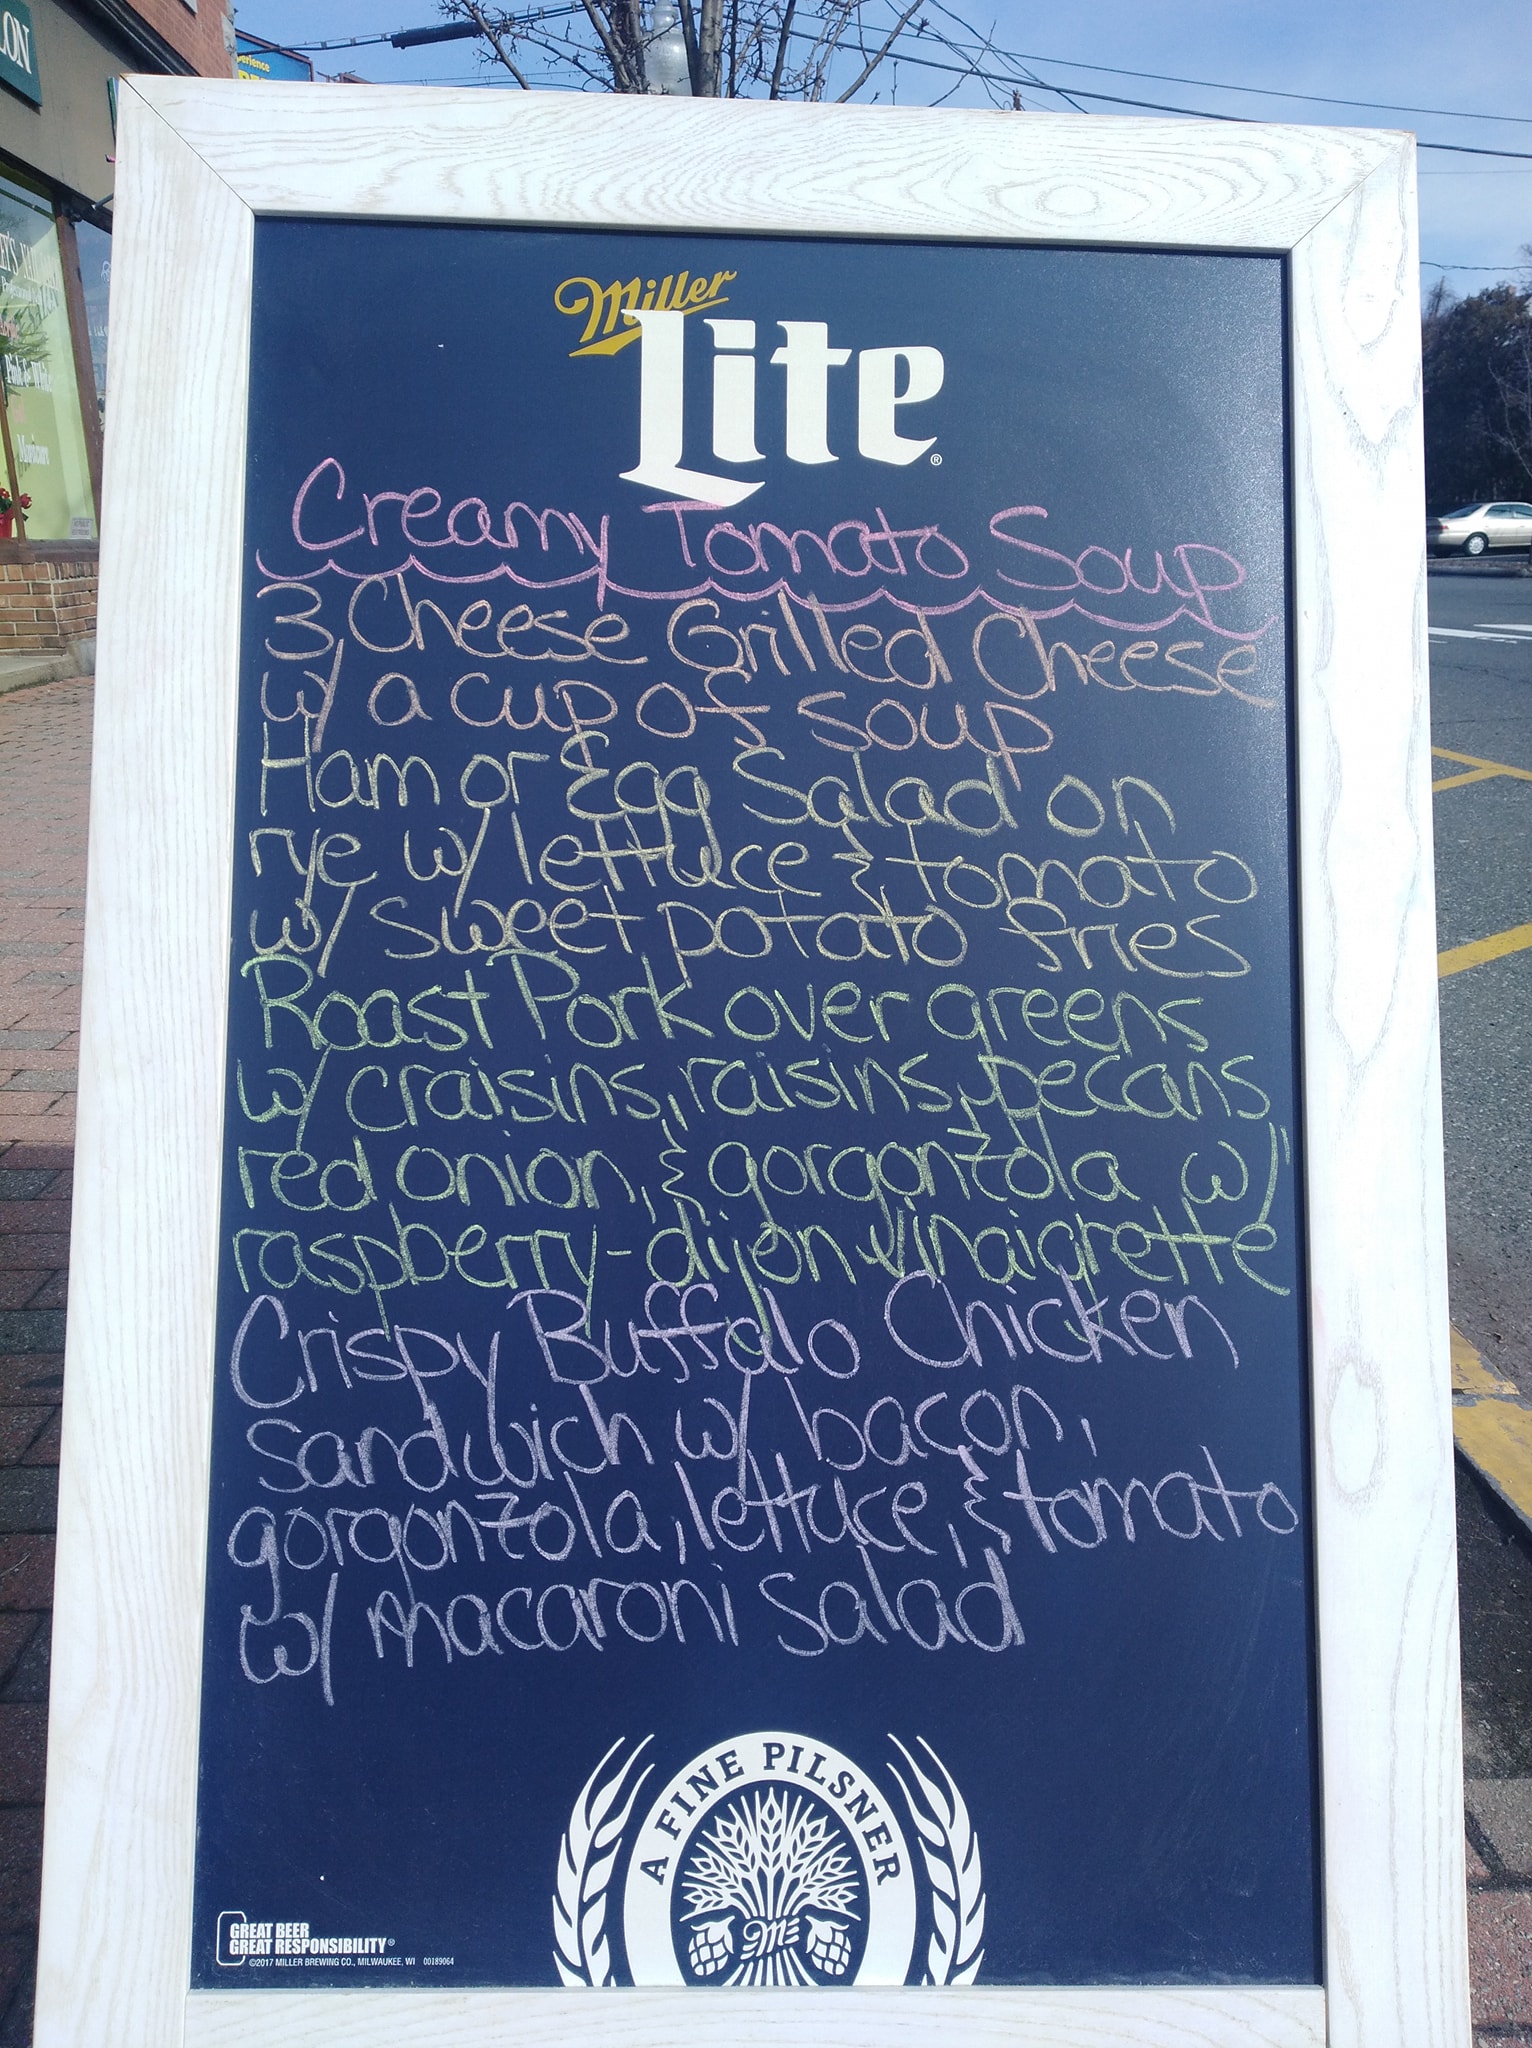 Miller
Lite
Creamy Tomato Soup
3 Cheese Grilled Cheese
w/ a cup of soup
Ham or Egg Salad on
rye w/ lettuce & tomato
w/ sweet potato fries
Roast Pork over greens
w/ craisins, raisins, pecans
red onion, & gorgonzola w/
raspberry-dijon vinaigrette
Crispy Buffalo Chicken
Sandwich w/ bacon,
gorgonzola, lettuce, & tomato
w/ macaroni salad
A FINE PILSNER
GREAT BEER
GREAT RESPONSIBILITY®
©2017 MILLER BREWING CO., MILWAUKEE, WI 00189064